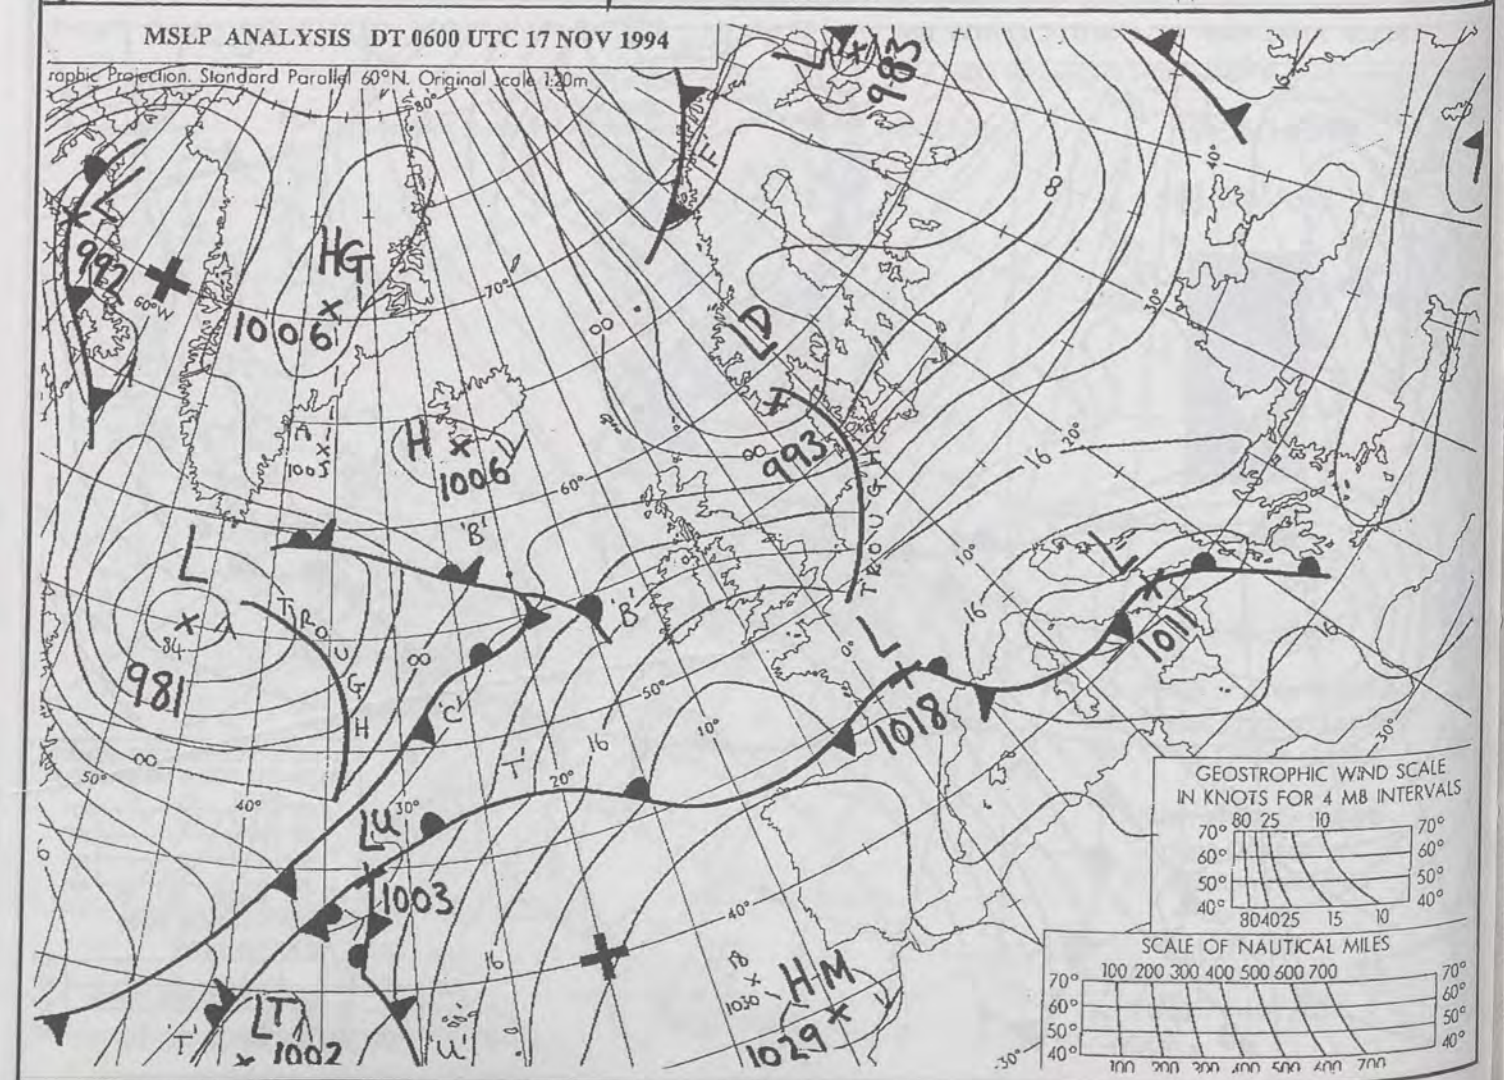 MSLP ANALYSIS DT 0600 UTC 17 NOV 1994
raphic Projection. Standard Parallel 60°N. Original scale 1:20m
80°
L
983
L
992
60°W
HG
1006
70°
F
8
40°
30°
LD
993
00
00
H
1006
1005
60°
16
20°
TROUGH
10°
L
84
981
TROUGH
'B'
'B'
00
'C'
00
50°
40°
30°
20°
10°
50°
0°
16
T'
L
1018
16
L
1011
30°
LU
1003
16
LT
1002
'T'
'U'
40°
18
1030
HM
1029
30°
GEOSTROPHIC WIND SCALE
IN KNOTS FOR 4 MB INTERVALS
80 25 10
70° 70°
60° 60°
50° 50°
40° 40°
80 40 25 15 10
SCALE OF NAUTICAL MILES
100 200 300 400 500 600 700
70° 70°
60° 60°
50° 50°
40° 40°
100 200 300 400 500 600 700